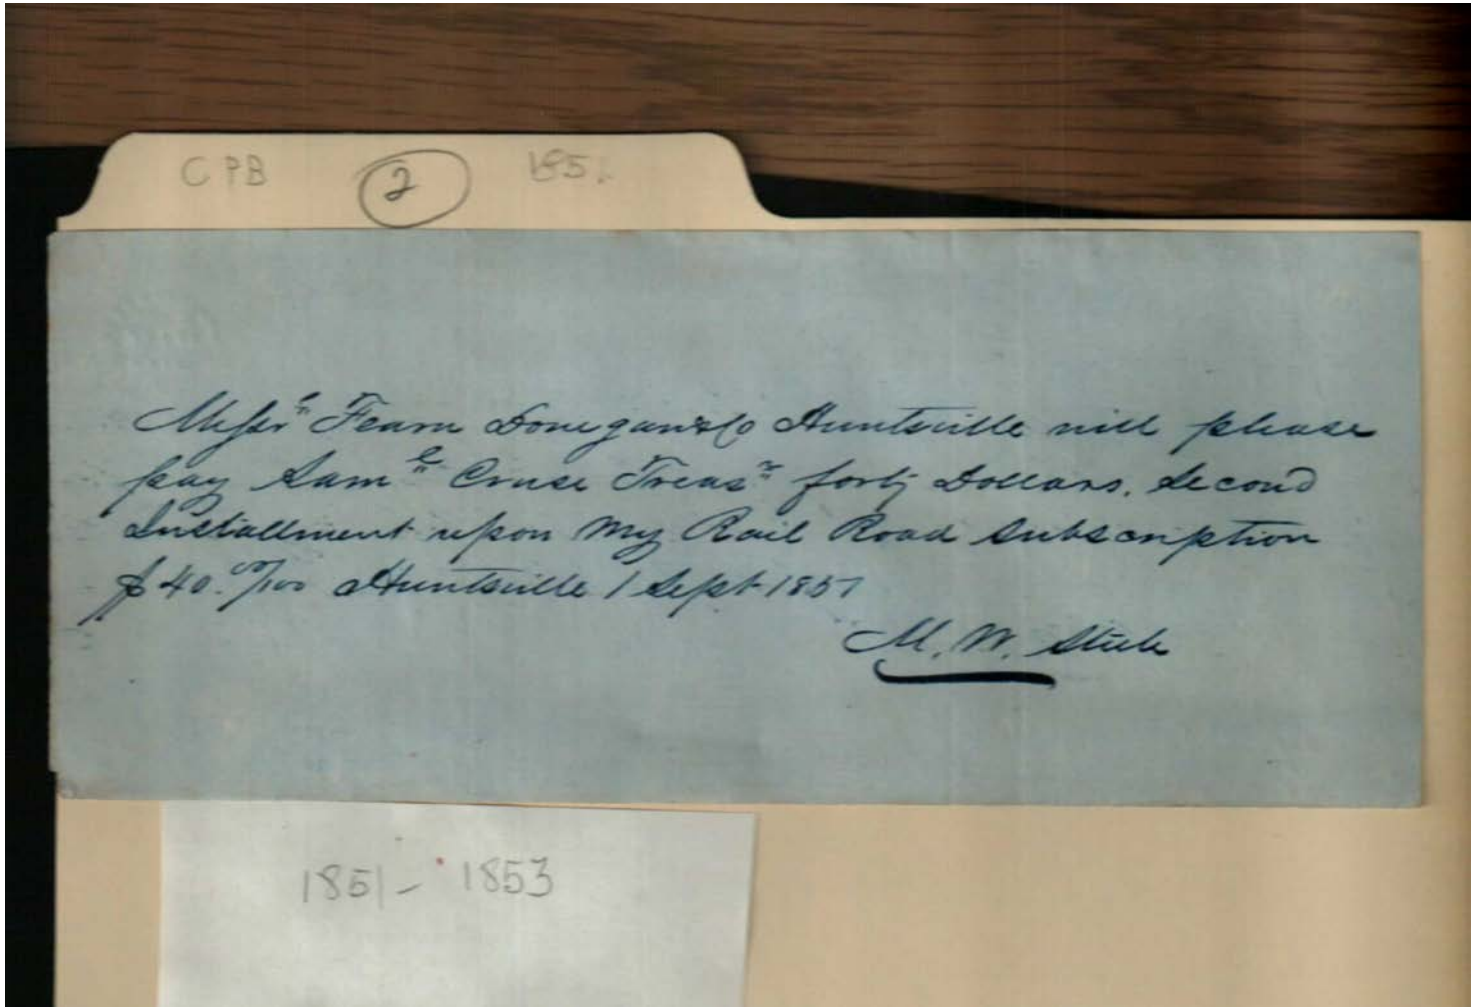 CPB 2 1851
Messrs Fearn Donegan & Co Huntsville will please
pay Saml Cruse Treasr forty Dollars, Second
Installment upon my Rail Road Subscription
$40.00/100 Huntsville 1 Sept 1851
M. W. Steele
1851 - 1853